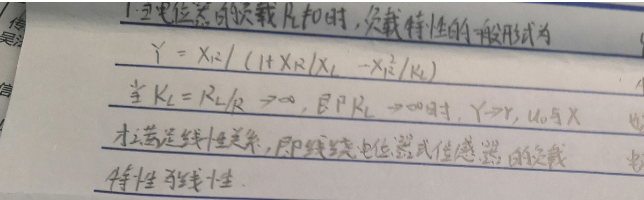 1.当电位器的负载RL≠0时,负载特性的一般形式为
Y = XR / (1+XR/XL - XR²/KL)
当KL=RL/R→∞,即RL→∞时,Y→r,u0与X
才满足线性关系,即线绕电位器式传感器的负载
特性为线性.